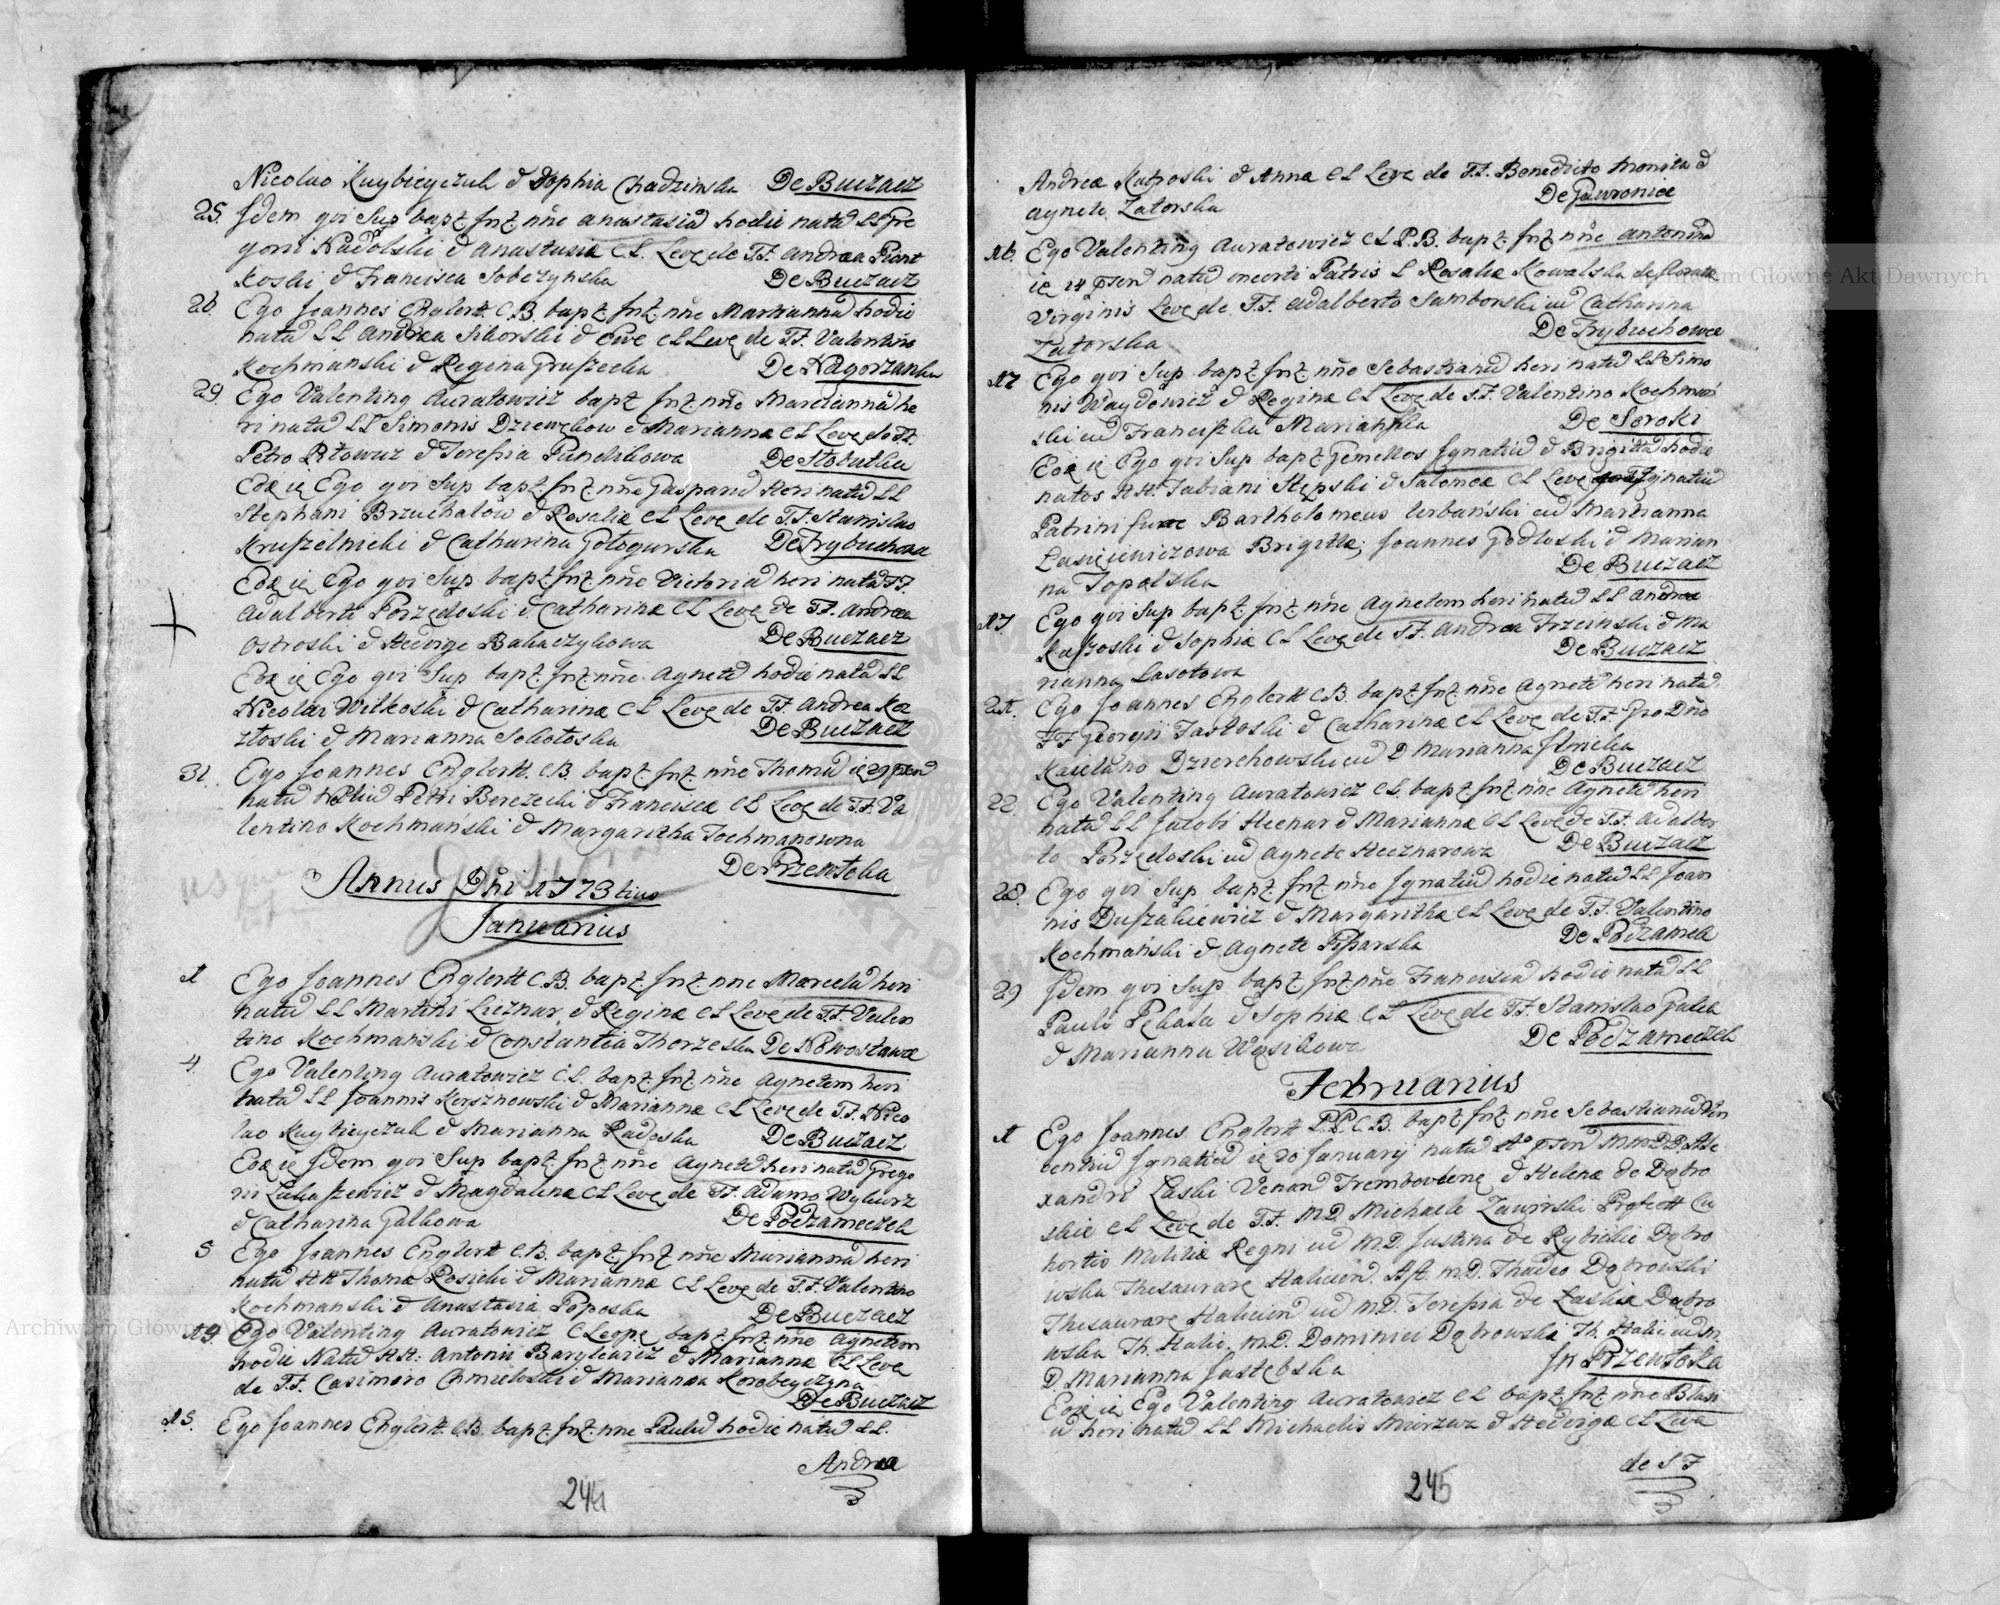 Nicolao Kuybieyczuk & Sophia Chadzinska De Buczacz
25. Idem qvi Sup bapt. Int. nne anastasia hodie nata LL Gre
gorii Nadolski & Anastasiæ CL. Leve de S.F. Andrea Piont
koski & Francisca Sobczynska De Buczacz
26. Ego Joannes Englert C.B. bapt. Int. nne Marianna hodie
nata LL Andrea Sikorski & Evæ CL Leve de S.F. Valentino
Kochmanski & Regina Gruszecka De Nagorzanka
29. Ego Valenting Auratowicz bapt Int. nne Marcianna he
ri nata LL Simonis Dziewękow & Mariannæ CL Leve de SF
Petro Rtowicz & Teresia Pundikowa De Stobutka
Edæ ie Ego qvi Sup bapt. Int. nne Gaspard heri natu LL
Stephani Brzuchatow & Rosaliæ CL Leve de S.F. Stanislao
Kruszelnicki & Catharina Gołogurska De Trybuchowa
Edæ ie Ego qvi Sup bapt. Int. nne Victoria heri nata SF.
Adalberti Porzędoski & Catharinæ CL Leve de SF. Andrea
Ostroski & Hedvige Bakaczykowa De Buczacz
Edæ ie Ego qvi Sup bapt. Int. nne Agnete hodie nata LL
Nicolai Witkoski & Catharinæ CL Leve de SF. Andrea Ko
złoski & Marianna Sokołoska De Buczacz
31. Ego Joannes Englert. CB. bapt. Int. nne Thoma ie 29 psen
natu Petri Berezecki & Franciscæ CL Leve de S.F. Va
lentino Kochmański & Margaritha Tochmanowna
De Przewłoka
Annus Dni 1773 tius
Januarius
1 Ego Joannes Englert C.B. bapt. Int. nne Marcela heri
nata LL Martini Licznar & Reginæ CL Leve de S.F. Valen
tino Kochmański & Constantia Thorzeska De Nowostawa
4. Ego Valenting Auratowicz C.L. bapt. Int. nne Agnetem heri
nata LL Joannis Kersznowski & Mariannæ CL Leve de S.F. Nico
lao Kuybieyczuk & Marianna Radoska De Buczacz
Edæ ie Idem qvi Sup bapt. Int. nne Agnete heri nata Grego
rii Lukaszewicz & Magdalenæ CL Leve de SF. Adamo Wyhurz
& Catharina Galkowa De Podzameczek
5 Ego Joannes Englert C.B. bapt. Int nne Marianna heri
nata HH Thomæ Rosicki & Mariannæ CL Leve de S.F. Valentino
Kochmanski & Anastasia Poposka De Buczacz
14 Ego Valenting Auratowicz CLegpe bapt. Int. nne Agnetem
hodie Nata HH: Antonii Barylewicz & Mariannæ CL Leve
de S.F. Casimiro Chmieloski & Marianna Korobeyczyna
De Buczacz
15. Ego Joannes Englert. CB. bapt. Int. nne Paulu hodie natu LL.
Andrea
244
Andreæ Kutroski & Annæ CL Leve de S.F. Benedicto Monika &
Agnete Zatorska De Gawronice
16. Ego Valenting Auratowicz CL P.B. bapt. Int. nne antonina
ie 14 psen nata incerti Patris L Rosaliæ Kowalska deflorata
Virginis Leve de S.F. Adalberto Samborski cu Catharina
Zatorska De Trybuchowce
17 Ego qvi Sup. bapt. Int. nne Sebastianu heri natu LL Simo
nis Waydowicz & Reginæ CL Leve de S.F. Valentino Kochmań
ski cu Franciszka Mariańska De Soroki
Edæ ie Ego qvi Sup bapt Gemellos Ignatiu & Brigitta hodie
natos HH. Fabiani Stępski & Salomeæ CL Leve Ignatiu
Patrini fuere Bartholomeus Urbański cu Marianna
Łasięwiczowa Brigittæ; Joannes Godłoski & Marian
na Topolska De Buczacz
17. Ego qvi Sup bapt. Int. nne Agnetem heri nata LL Andrea
Kutroski & Sophiæ CL Leve de S.F. Andrea Trzcinski & Ma
rianna Lasotowa De Buczacz
21. Ego Joannes Englert C.B. bapt. Int. nne Agnete heri nata
SF Georgii Jastoski & Catharinæ CL Leve de S.F. Gro Dno
Kaietano Dzierchowski cu D Marianna Ilnicka
De Buczacz
22. Ego Valenting Auratowicz CL. bapt. Int. nne Agnete heri
nata LL Jacobi Hecnar & Mariannæ CL Leve de S.F. Adalber
to Porzędoski cu Agnete Hecznarowa De Buczacz
28. Ego qvi Sup bapt. Int. nne Ignatiu hodie natu LL Joan
nis Duszakiewicz & Margarithæ CL Leve de S.F. Valentino
Kochmański & Agnete Pisarska De Podzamek
29 Idem qvi Sup bapt. Int. nne Francisca hodie nata LL
Pauli Pękala & Sophiæ CL Leve de SF. Stanislao Galea
& Marianna Wąsikowa De Podzameczek
Februarius
1 Ego Joannes Englert P.P.C.B. bapt. Int nne Sebastianu Vin
centiu Ignatiu ie 20 Januarij natu Ao psen MMDD. Ale
xandri Łaski Venan Trembovlenę & Helenæ de Dąbro
skie CL Leve de S.F. MD. Michaele Zawirski Præfect Cu
hortis Militiæ Regni cu M.D. Justina de Rybickie Dąbro
wska Thesaurare Halicien. Ast. M.D. Thadeo Dąbrowski
Thesaurare Halicien cu M.D. Teresia de Łaskie Dąbro
wska Th. Halic. M.D. Dominici Dąbrowski Th. Halic cu M
D. Marianna Jastębska In Przewłoka
Edæ ie Ego Valenting Auratowicz CL bapt. Int. nne Blasi
u heri natu LL Michaelis Murzacz & Hedvigæ CL Leva
de SF
245
Archiwum Główne Akt Dawnych
Archiwum Główne Akt Dawnych